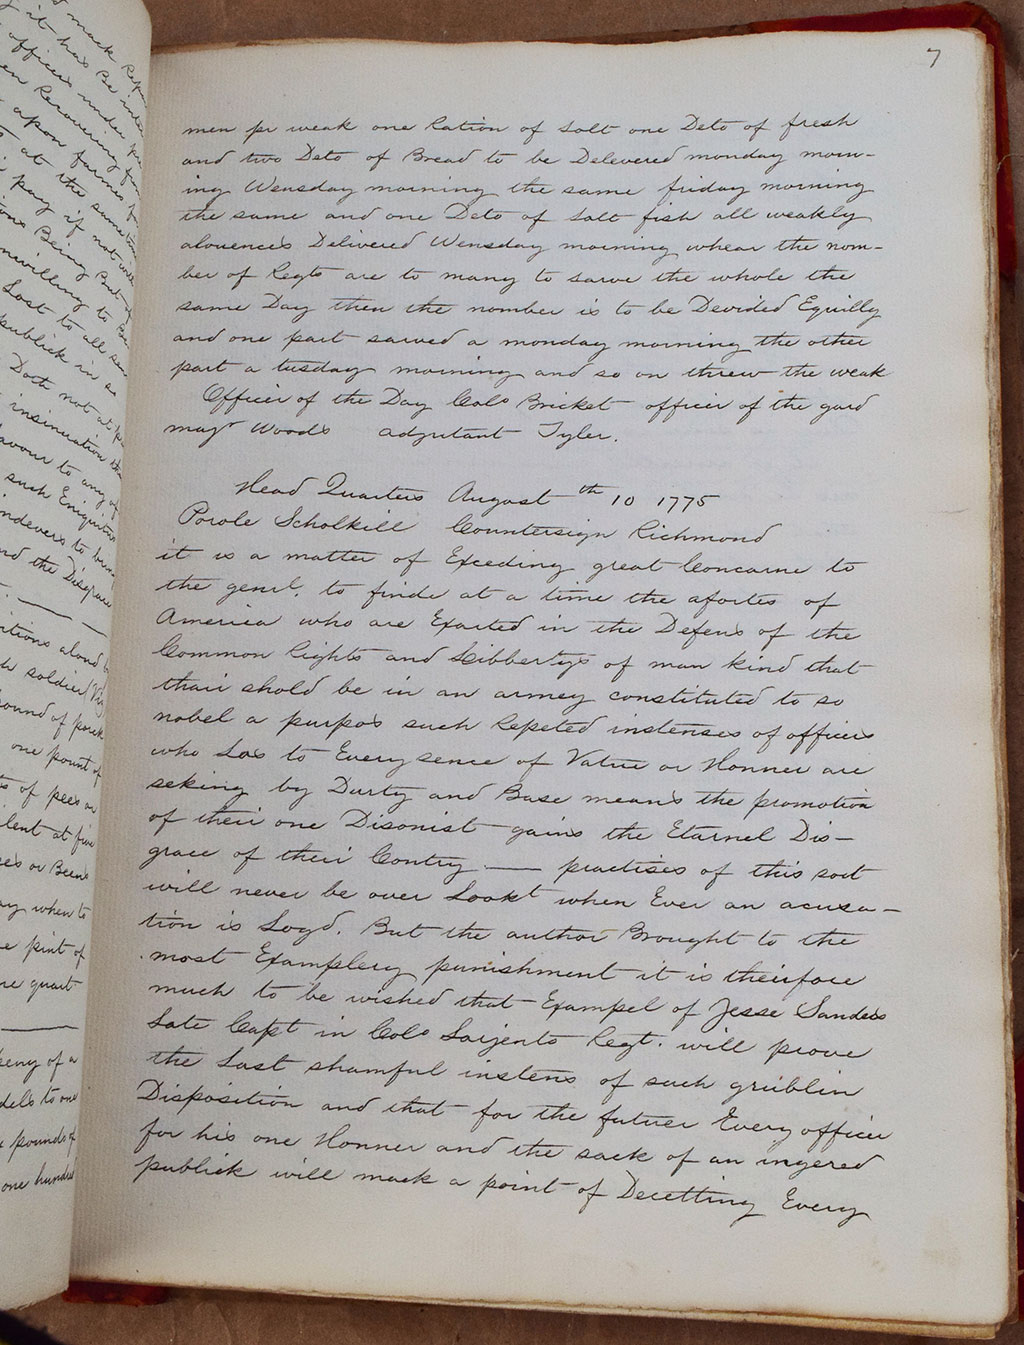 7
men pr weak one Ration of salt one Deto of fresh
and two Deto of Bread to be Delevered monday morn-
ing Wensday morning the same friday morning
the same and one Deto of salt fish all weakly
alouences Delivered Wensday morning whear the nom-
ber of Regts are to many to sarve the whole the
same Day then the number is to be Devided Equilly
and one part sarved a monday morning the other
part a tusday morning and so on threw the weak
Officer of the Day Colo Bricket officer of the gard
majr Woods adjutant Tyler.
Head Quarters August th 10 1775
Parole Scholkill Countersign Richmond
it is a matter of Exceding great Concarne to
the genrl. to finde at a time the afortes of
America who are Exarted in the Defens of the
Common Rights and Libbertys of man kind that
thair shold be in an armey constituted to so
nobel a purpos such Repeted instenses of officers
who Los to Every sence of Vatue or Honner are
seking by Durty and Base means the promotion
of their one Disonist gains the Etarnel Dis-
grace of their Contry — practises of this sort
will never be over Lookt when Ever an acusa-
tion is Logd. But the author Brought to the
most Examplery punishment it is theirfore
much to be wished that Exampel of Jesse Sanders
Late Capt in Colo Sarjents Regt. will prove
the Last shamful instens of such griblin
Disposition and that for the futuer Every officer
for his one Honner and the sack of an ingered
publick will mack a point of Decetting Every
mack
it has Be
officers under
Recovering
upon
at the same
pay if not
Being
unwilling to
Lost to all
publick in
Doth not at
insinuation
favour to any of
such Eniquitous
indevers to bring
and the Disgrace
aloud
soldier
pound of pork
one pount of
of pees or
at five
or Beens
when to
pint of
quart
of a
to one
pounds of
one hundred